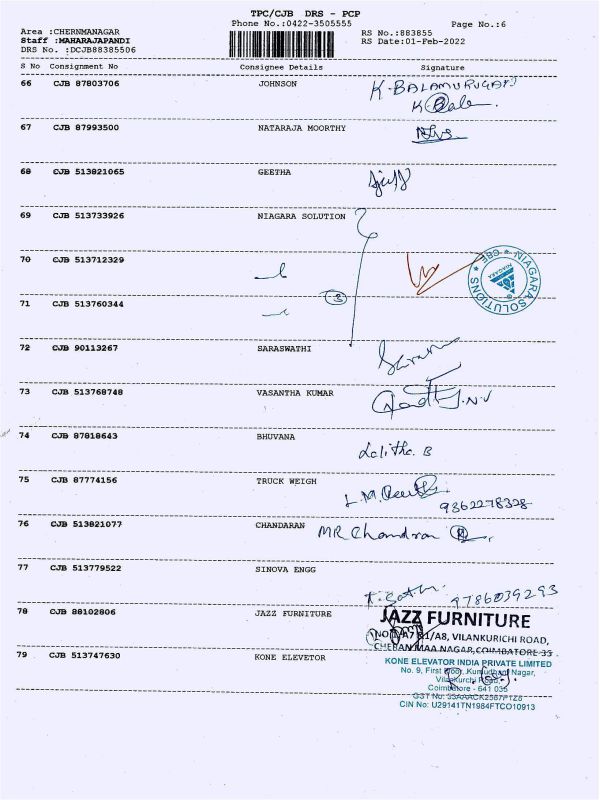 TPC/CJB DRS - PCP
Phone No.:0422-3505555
Page No.:6
Area :CHERNMANAGAR
RS No.:883855
Staff :MAHARAJAPANDI
RS Date:01-Feb-2022
DRS No. :DCJB88385506
S No Consignment No Consignee Details Signature
66 CJB 87803706 JOHNSON K-BALAMURUGAN
K Bala
67 CJB 87993500 NATARAJA MOORTHY
68 CJB 513821065 GEETHA
69 CJB 513733926 NIAGARA SOLUTION
70 CJB 513712329
NIAGARA SOLUTIONS * CBE *
NIAGARA
3
71 CJB 513760344
72 CJB 90113267 SARASWATHI
73 CJB 513768748 VASANTHA KUMAR
74 CJB 87818643 BHUVANA
Lalitha. B
75 CJB 87774156 TRUCK WEIGH
9362278328
76 CJB 513821077 CHANDARAN MR Chandran
77 CJB 513779522 SINOVA ENGG
9786039293
78 CJB 88102806 JAZZ FURNITURE
JAZZ FURNITURE
VILANKURICHI ROAD,
CHERAN MAA NAGAR, COIMBATORE 35
79 CJB 513747630 KONE ELEVETOR
KONE ELEVATOR INDIA PRIVATE LIMITED
No. 9, First Floor, Kumudham Nagar,
Vilankurchi Road,
Coimbatore - 641 035
CIN No: U29141TN1984FTCO10913